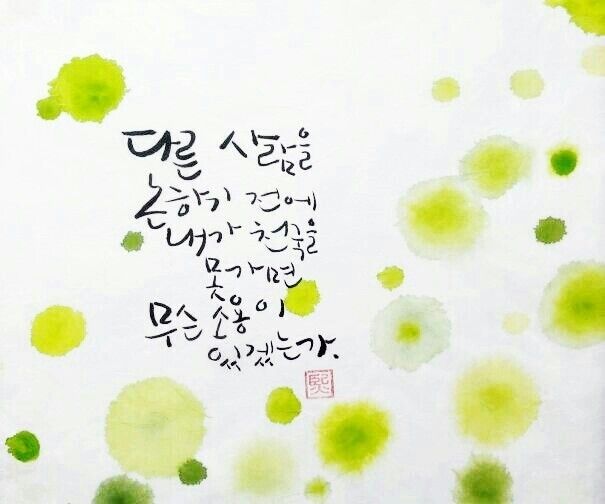 다른 사람을
논하기 전에
내가 천국을
못가면
무슨 소용이
있겠는가.
熙